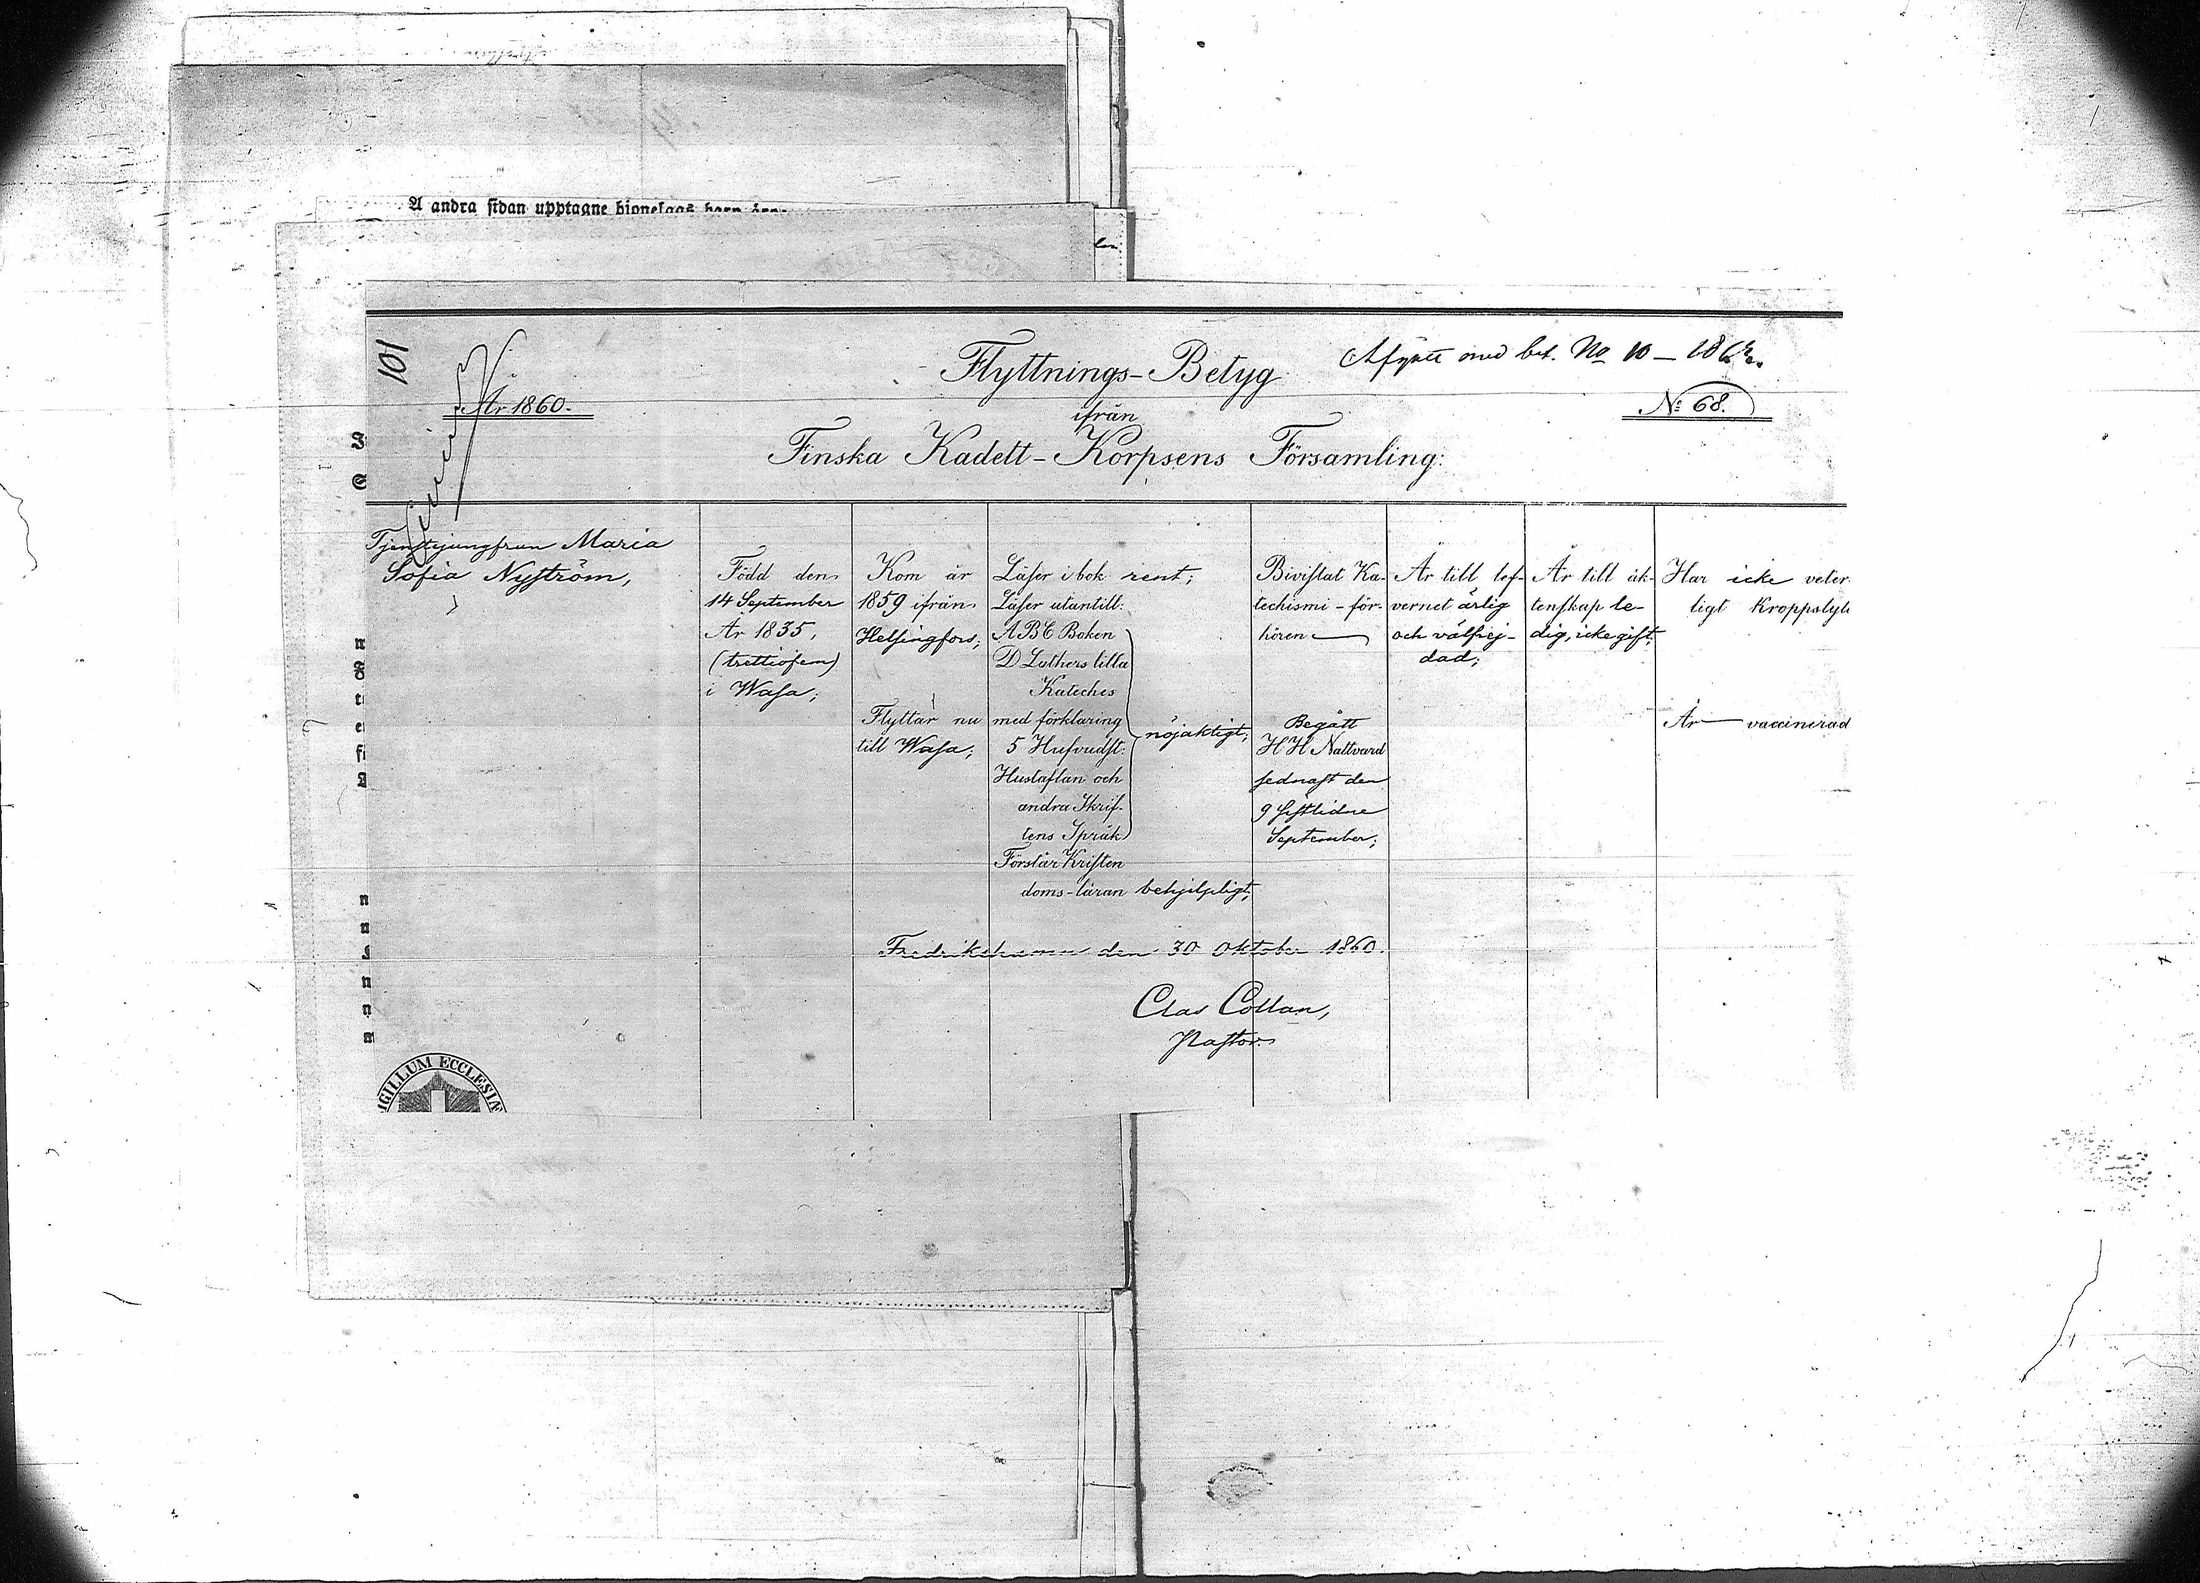 A andra sidan upptagne
101
Flyttnings-Betyg
med bet. No 10 - 186
År 1860.
No 68.
ifrån
Finska Kadett-Korpsens Församling:
Tjenstejungfrun Maria
Sofia Nyström,
Född den
14 September
År 1835,
(trettiofem)
i Wasa;
Kom år
1859 ifrån
Helsingfors;
Flyttar nu
till Wasa;
Läser i bok rent;
Läser utantill:
ABC Boken
D Luthers lilla
Kateches
med förklaring
5 Hufvudst:
Hustaflan och
andra Skrif-
tens Språk
nöjaktigt;
Förstår Kristen
doms-läran behjelpligt;
Bivistat Ka-
techismi-för-
hören
Begått
HH Nattvard
sednast den
9 sistlidne
September;
Är till lef-
vernet ärlig
och välfrej-
dad;
Är till äk-
tenskap le-
dig, icke gift;
Har icke veter-
ligt Kroppslyte
Är vaccinerad
Fredrikshamn den 30 Oktober 1860.
Clas Collan,
Pastor.
SIGILLUM ECCLESIÆ